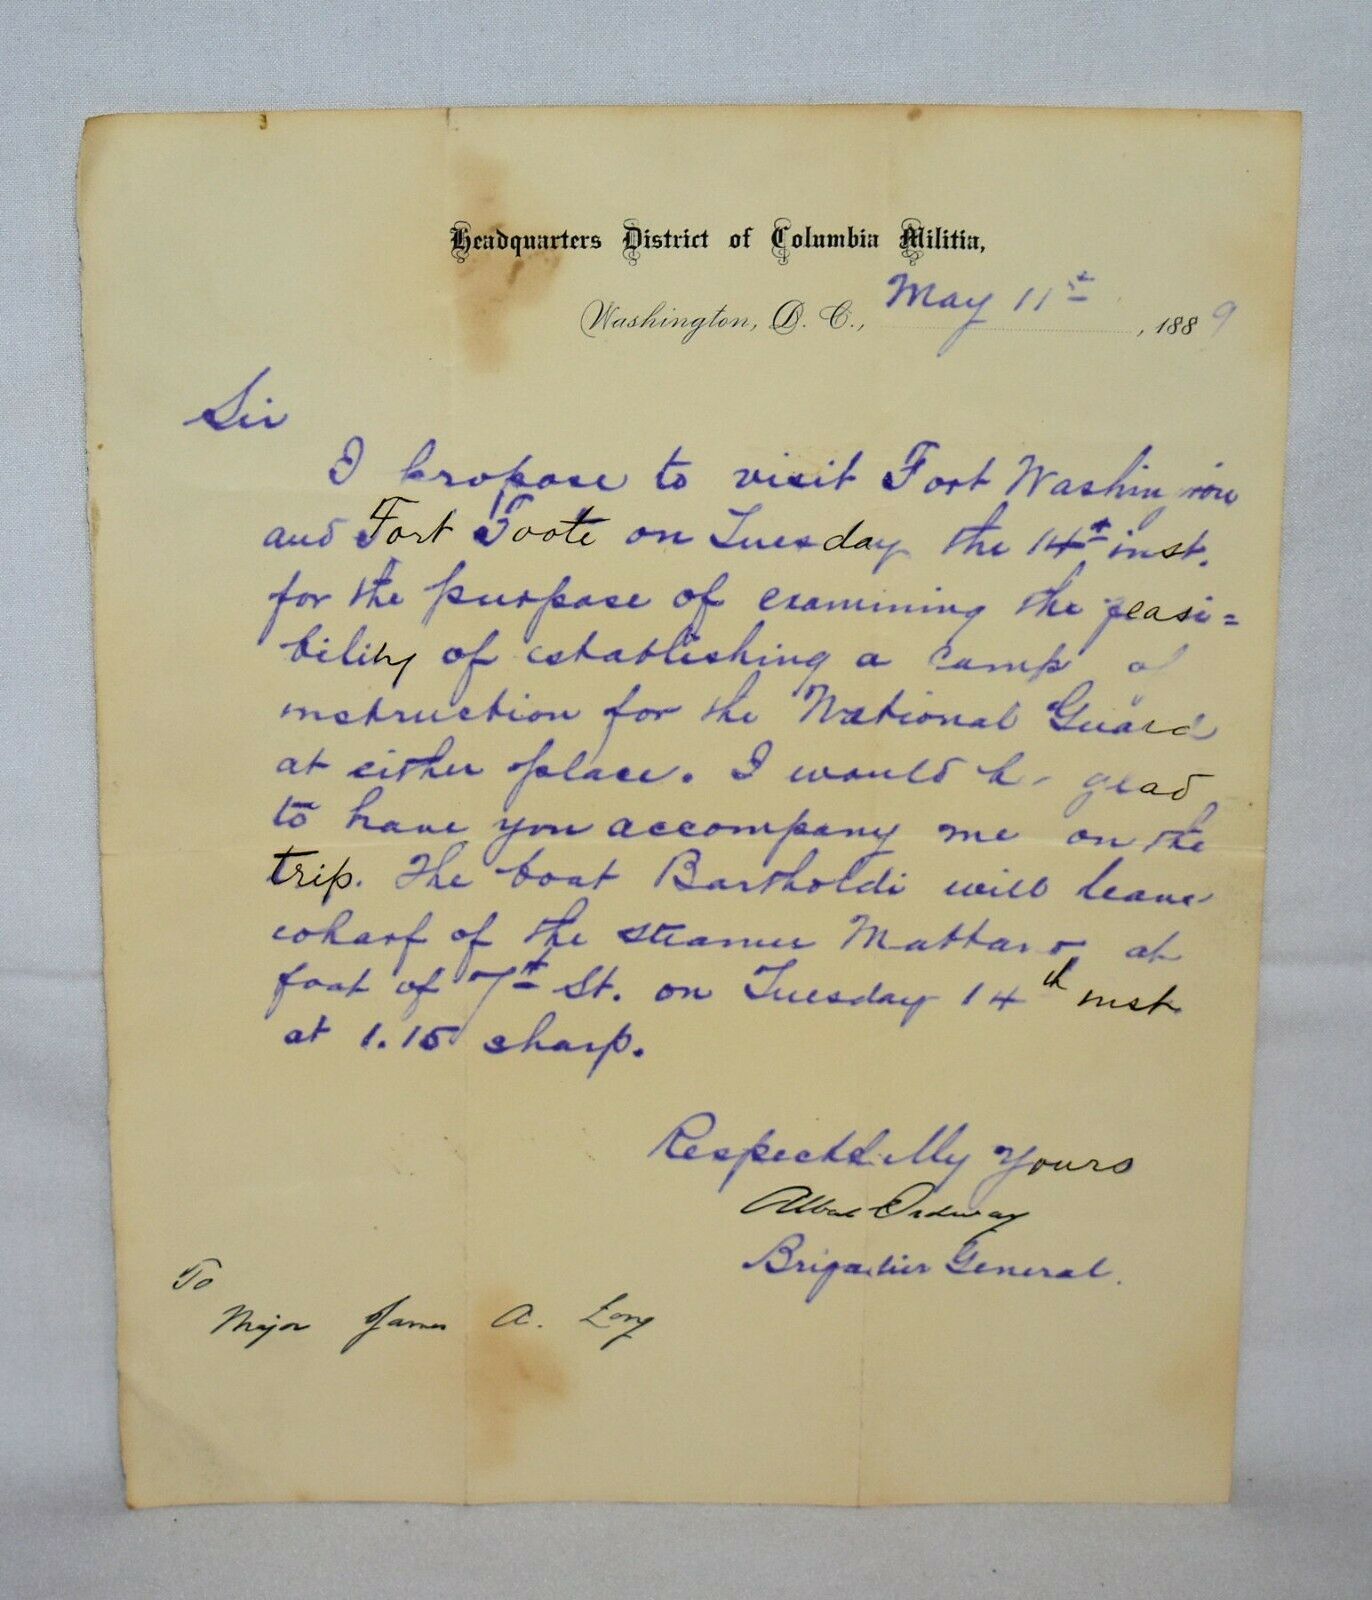 Headquarters District of Columbia Militia,
Washington, D. C., May 11st, 1889
Sir
I propose to visit Fort Washington
and Fort Foote on Tuesday the 14th inst.
for the purpose of examining the feasi=
bility of establishing a camp of
instruction for the National Guard
at either place. I would be glad
to have you accompany me on the
trip. The boat Bartholdi will leave
wharf of the steamer Mattano at
foot of 7th St. on Tuesday 14th inst
at 1.15 sharp.
Respectfully Yours
Albert Ordway
Brigadier General.
To
Major James A. Long